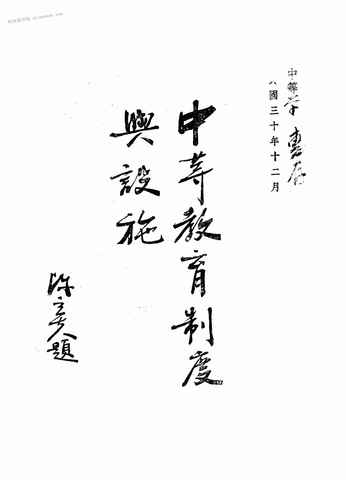 國三十年十二月
中等教育制度
與設施
陳立夫題